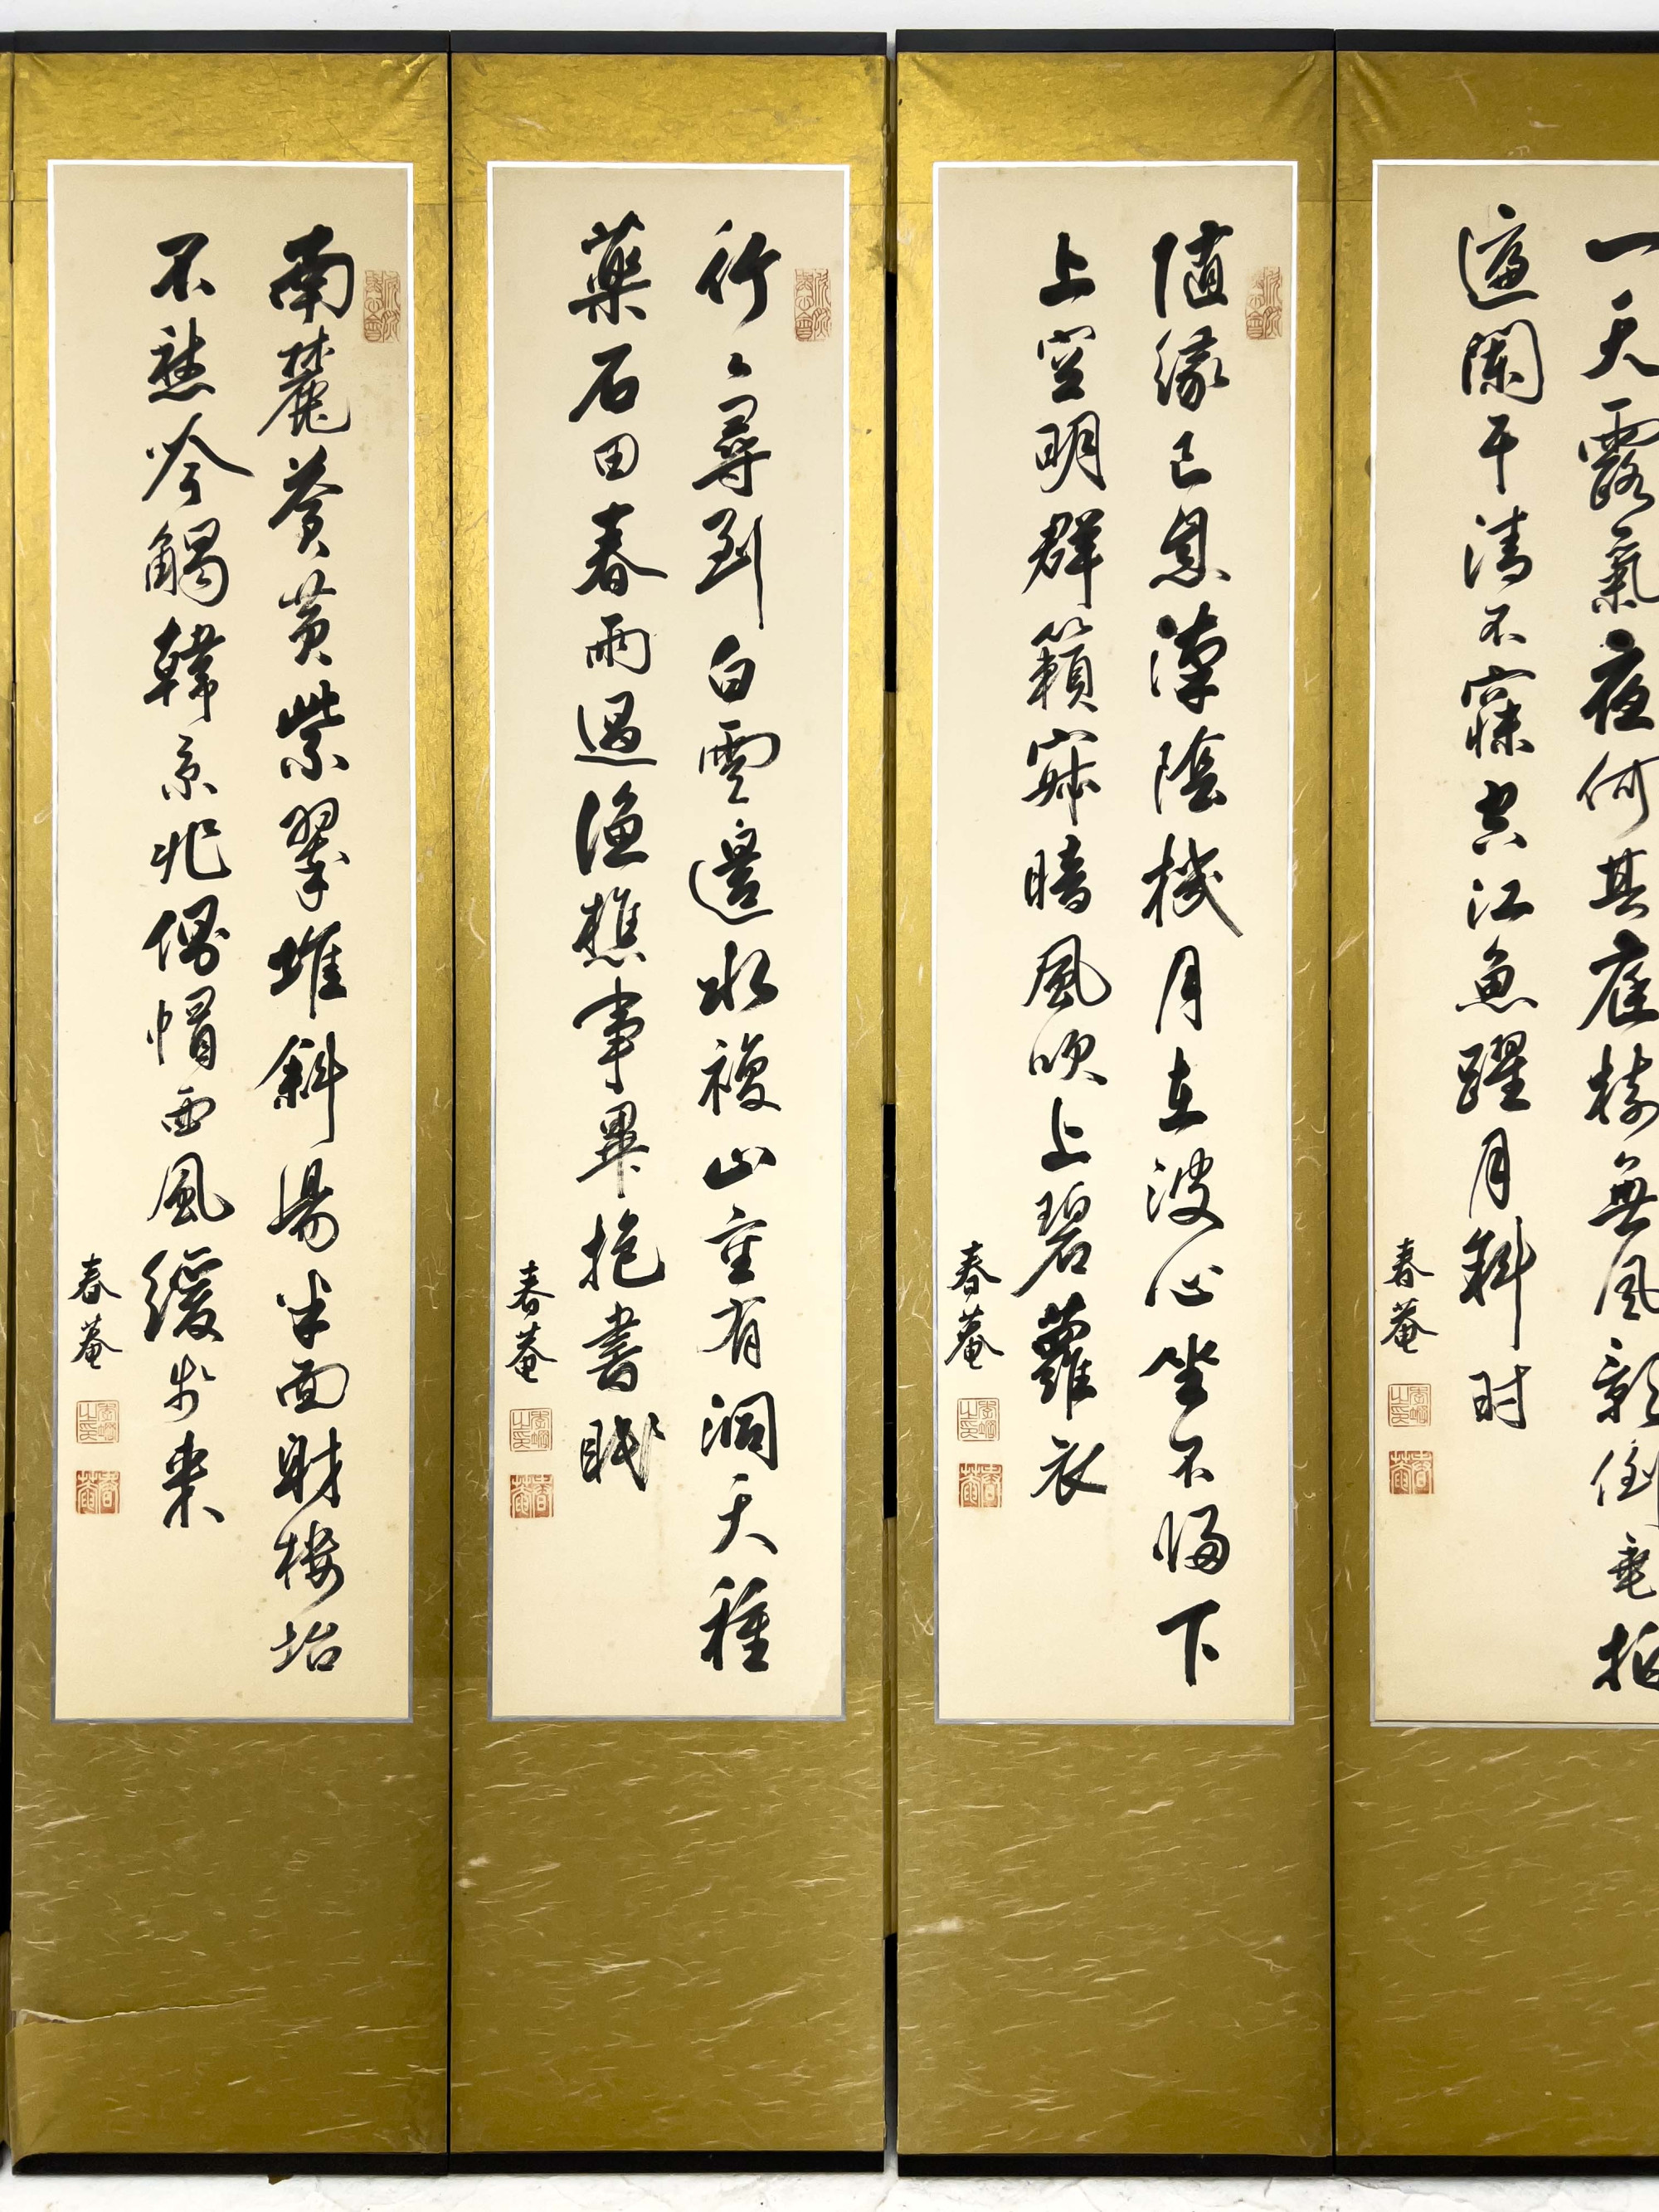 一天露氣夜何其庭樹無風影倒垂拍
遍闌干清不寐空江魚躍月斜时
春菴
隨緣已息漢陰機月在波心坐不歸下
上空明群籟寂暗風吹上碧蘿衣
春菴
行〻尋到白雲邊水複山重有洞天種
藥石田春雨過漁樵事畢抱書眠
春菴
南麓蒼黃紫翠堆斜陽半面射樓坮
不愁吟觸韓京兆側帽西風緩步來
春菴